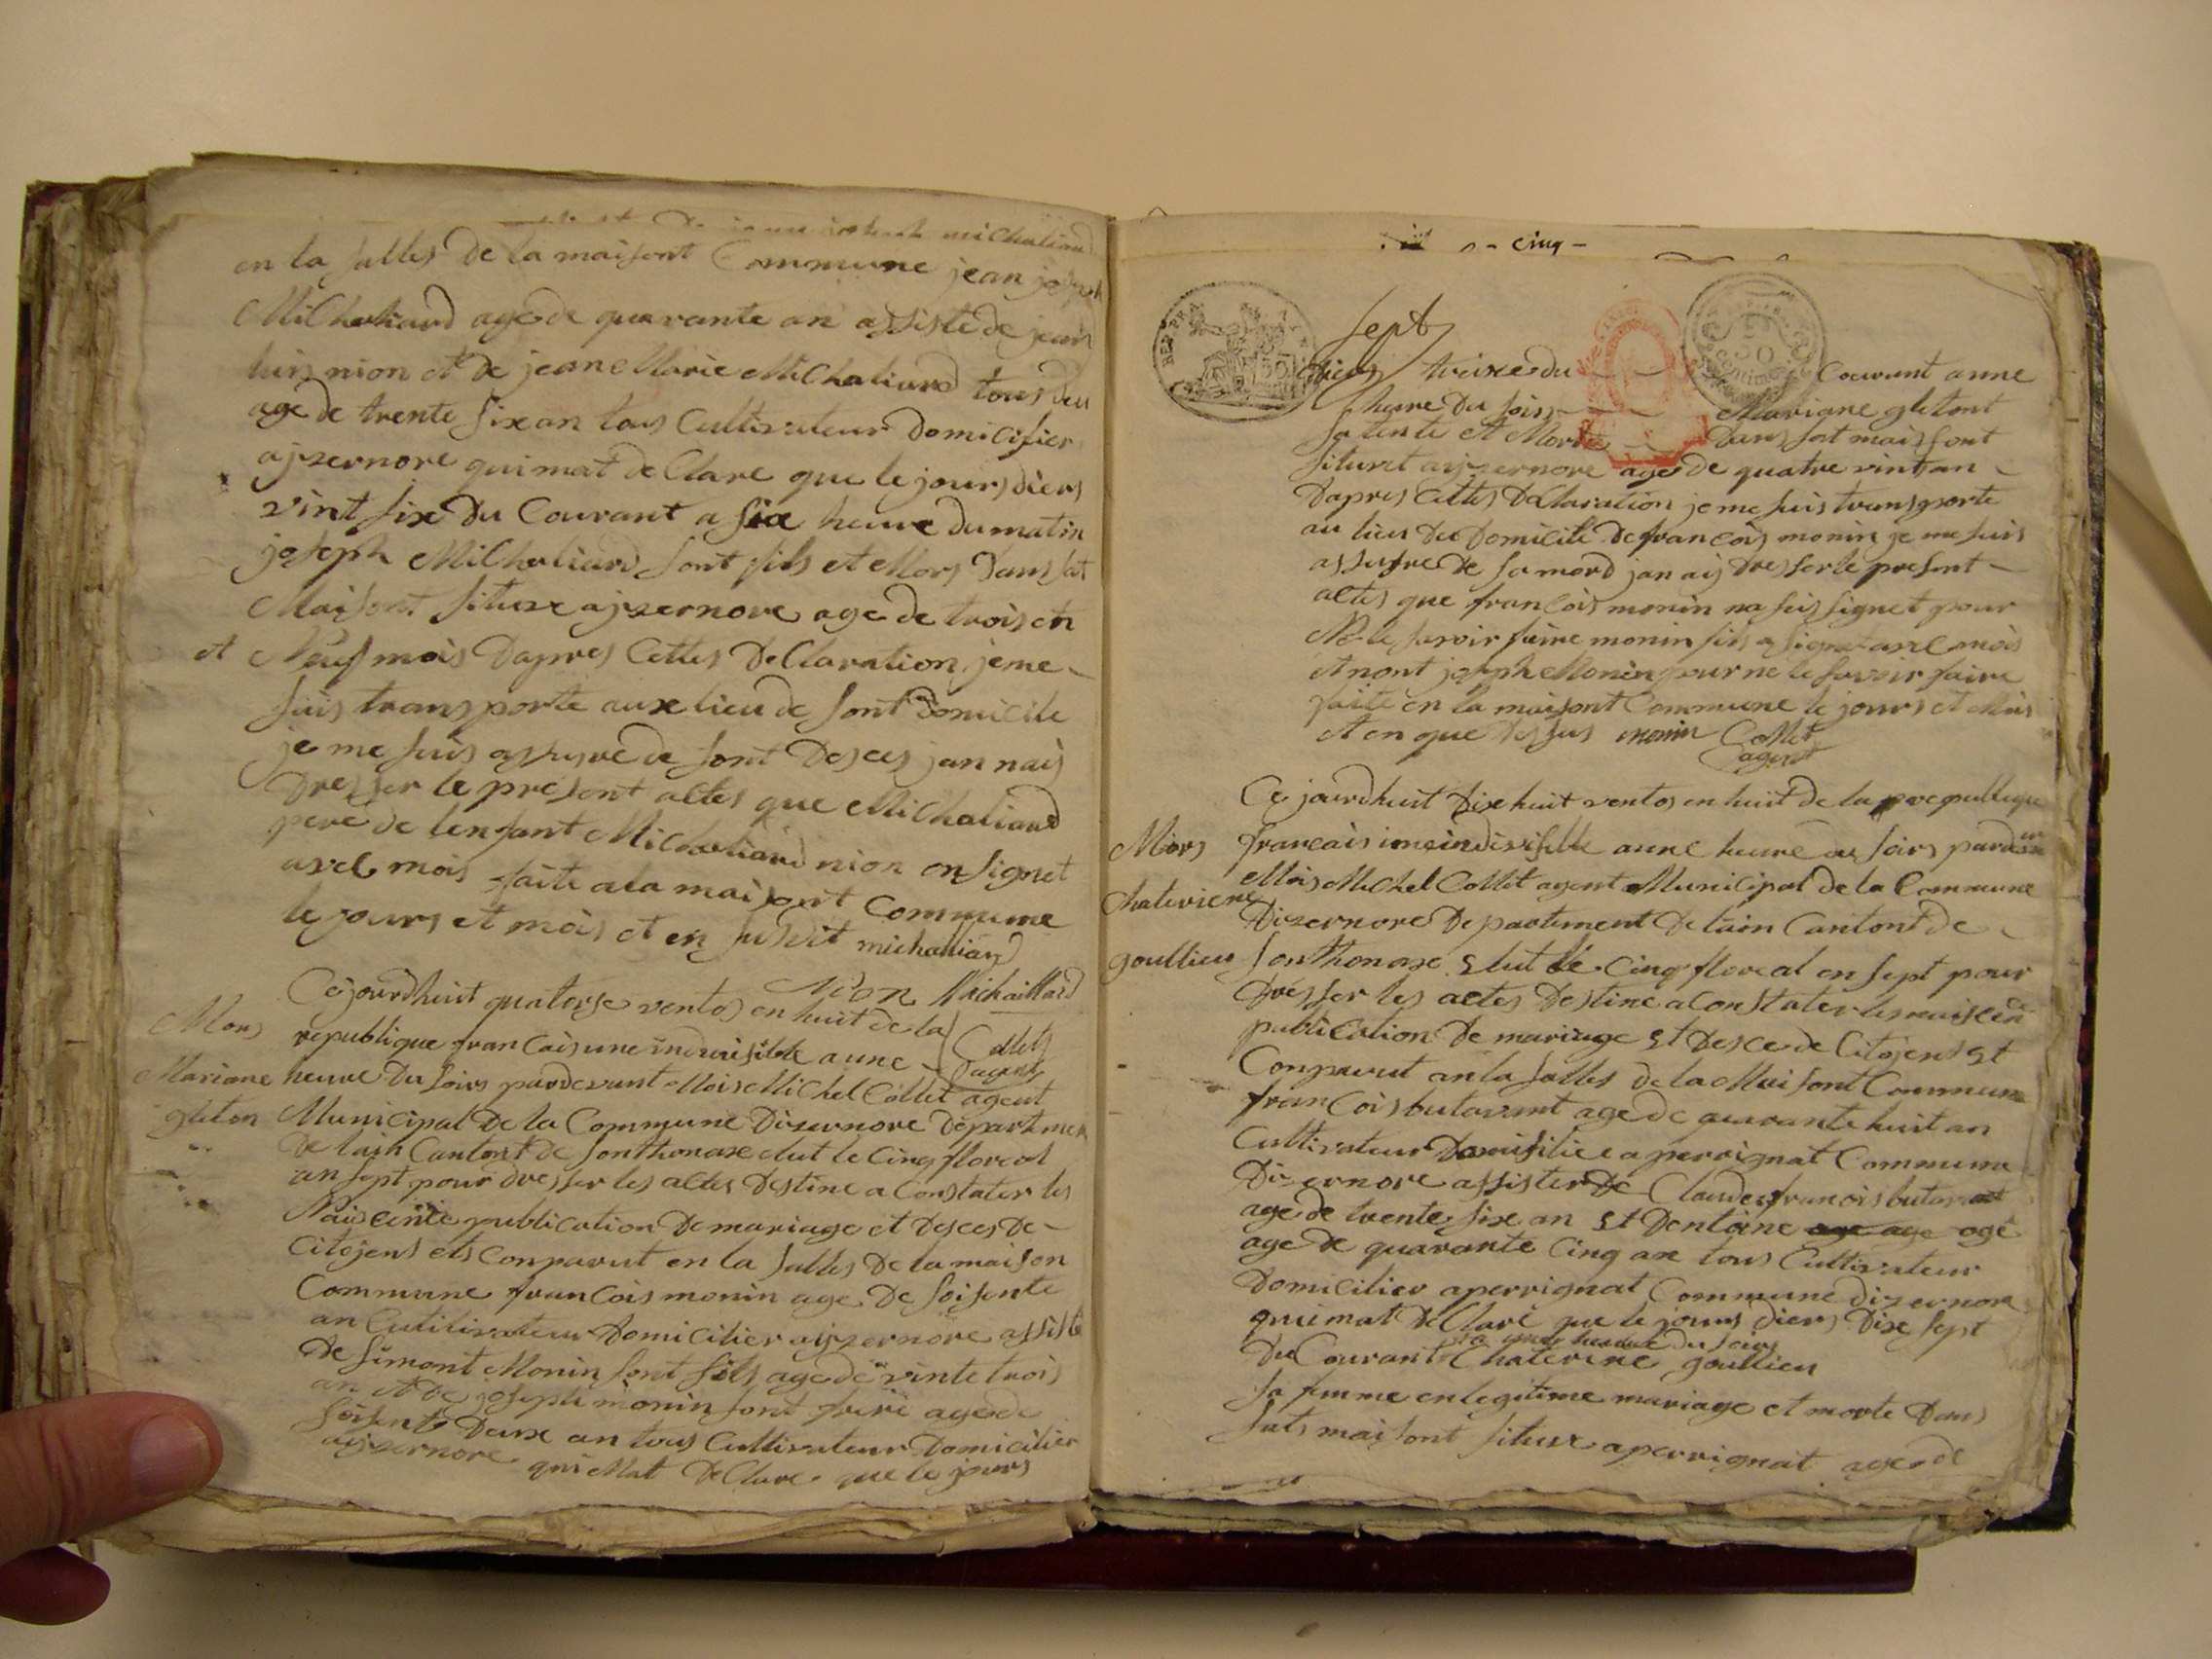 michaliand
en la salles de la maisont Commune jean joseph
Michaliand age de quarante an assiste de jean
luis nion et de jean Marie Michaliand tous deu
age de trente six an tous Cultivateur domicisier
ajzernore qui mat declare que le jours diers
vint six du Courant a six heure du matin
joseph Michaliand sont fils et Mors dans sat
Maisont situxe ajzernore age de trois en
et Neuf mois dapres Cettes declaration je me
suis transporte aux lieu de sont domicile
je me suis assure de sont desces jan nais
dresser le present altes que Michaliand
pere de lenfant Michaliand nion on signet
avec mois faite a la maisont Commune
le jours et mois et en susdit michaliand
Nion Michaillard
Collet
agent
Mors
Mariane
gleton
Ce jourdhuit quatorse ventos en huit de la
republique francais une indivisible a une
heure du soirs pardevant Mois Michel Collet agent
Municipal de la Commune dizernore departmen
de lain Cantont de sonthonax elut le Cinq floreal
an sept pour dresser les altes destine a Constater les
Naisente publication de mariage et desces de
Citojens ets Conparut en la salles de la maison
Commune francois monin age de soisente
an Cultivateur domicilier ajzernore assiste
de simont Monin sont fils age de vinte trois
an et de joseph monin sont frere age de
soisente deux an tous Cultivateur domicilier
ajzernore qui Mat declare que le jours
cinq
REP. FRA
50
50
Centimes
sept
diers treize du Courant a une
heure du soirs Mariane gletont
sa tente et Morte dans sat maissont
situxet aijzernore age de quatre vint an
dapres Cettes declaration je me suis transporte
au lieu du domicile de francois monin je me suis
assusre de sa mord jan ais dresser le present
altes que francois monin na seis signet pour
Ne le savoir faire monin fils a signet avec mois
et nont joseph Monin pour ne le savoir faire
faite en la maisont Commune le jours et Mois
et en que dessus monin Collet
agent
Mors
Chaterine
goullieu
Ce jourdhuit dixe huit ventos en huit de la republique
francais une indivisible a une heure du soirs pardevan
Mois Michel Collet agent Municipal de la Commune
dizernore departiment de lain Cantont de
sonthonax elut le Cinq floreal en sept pour
dresser les actes destine a Constater les naisende
publication de mariage et desce de Citojens et
Conparut en la salles de la Maisont Commune
francois butavant age de quarante huit an
Cultivateur domisilie a perrignat Commune
dizernore assister de Claude francois butavant
age de trente six an et dentoine age age age
age de quarante Cinq an tous Cultivateur
domicilier a perrignat Commune dizernore
qui mat declare que le jours diers dixe sept
du Courant a une heure du soirs Chaterine goullieu
sa femme en legitime mariage et morte dans
sats maisont situxe a perrignat age de